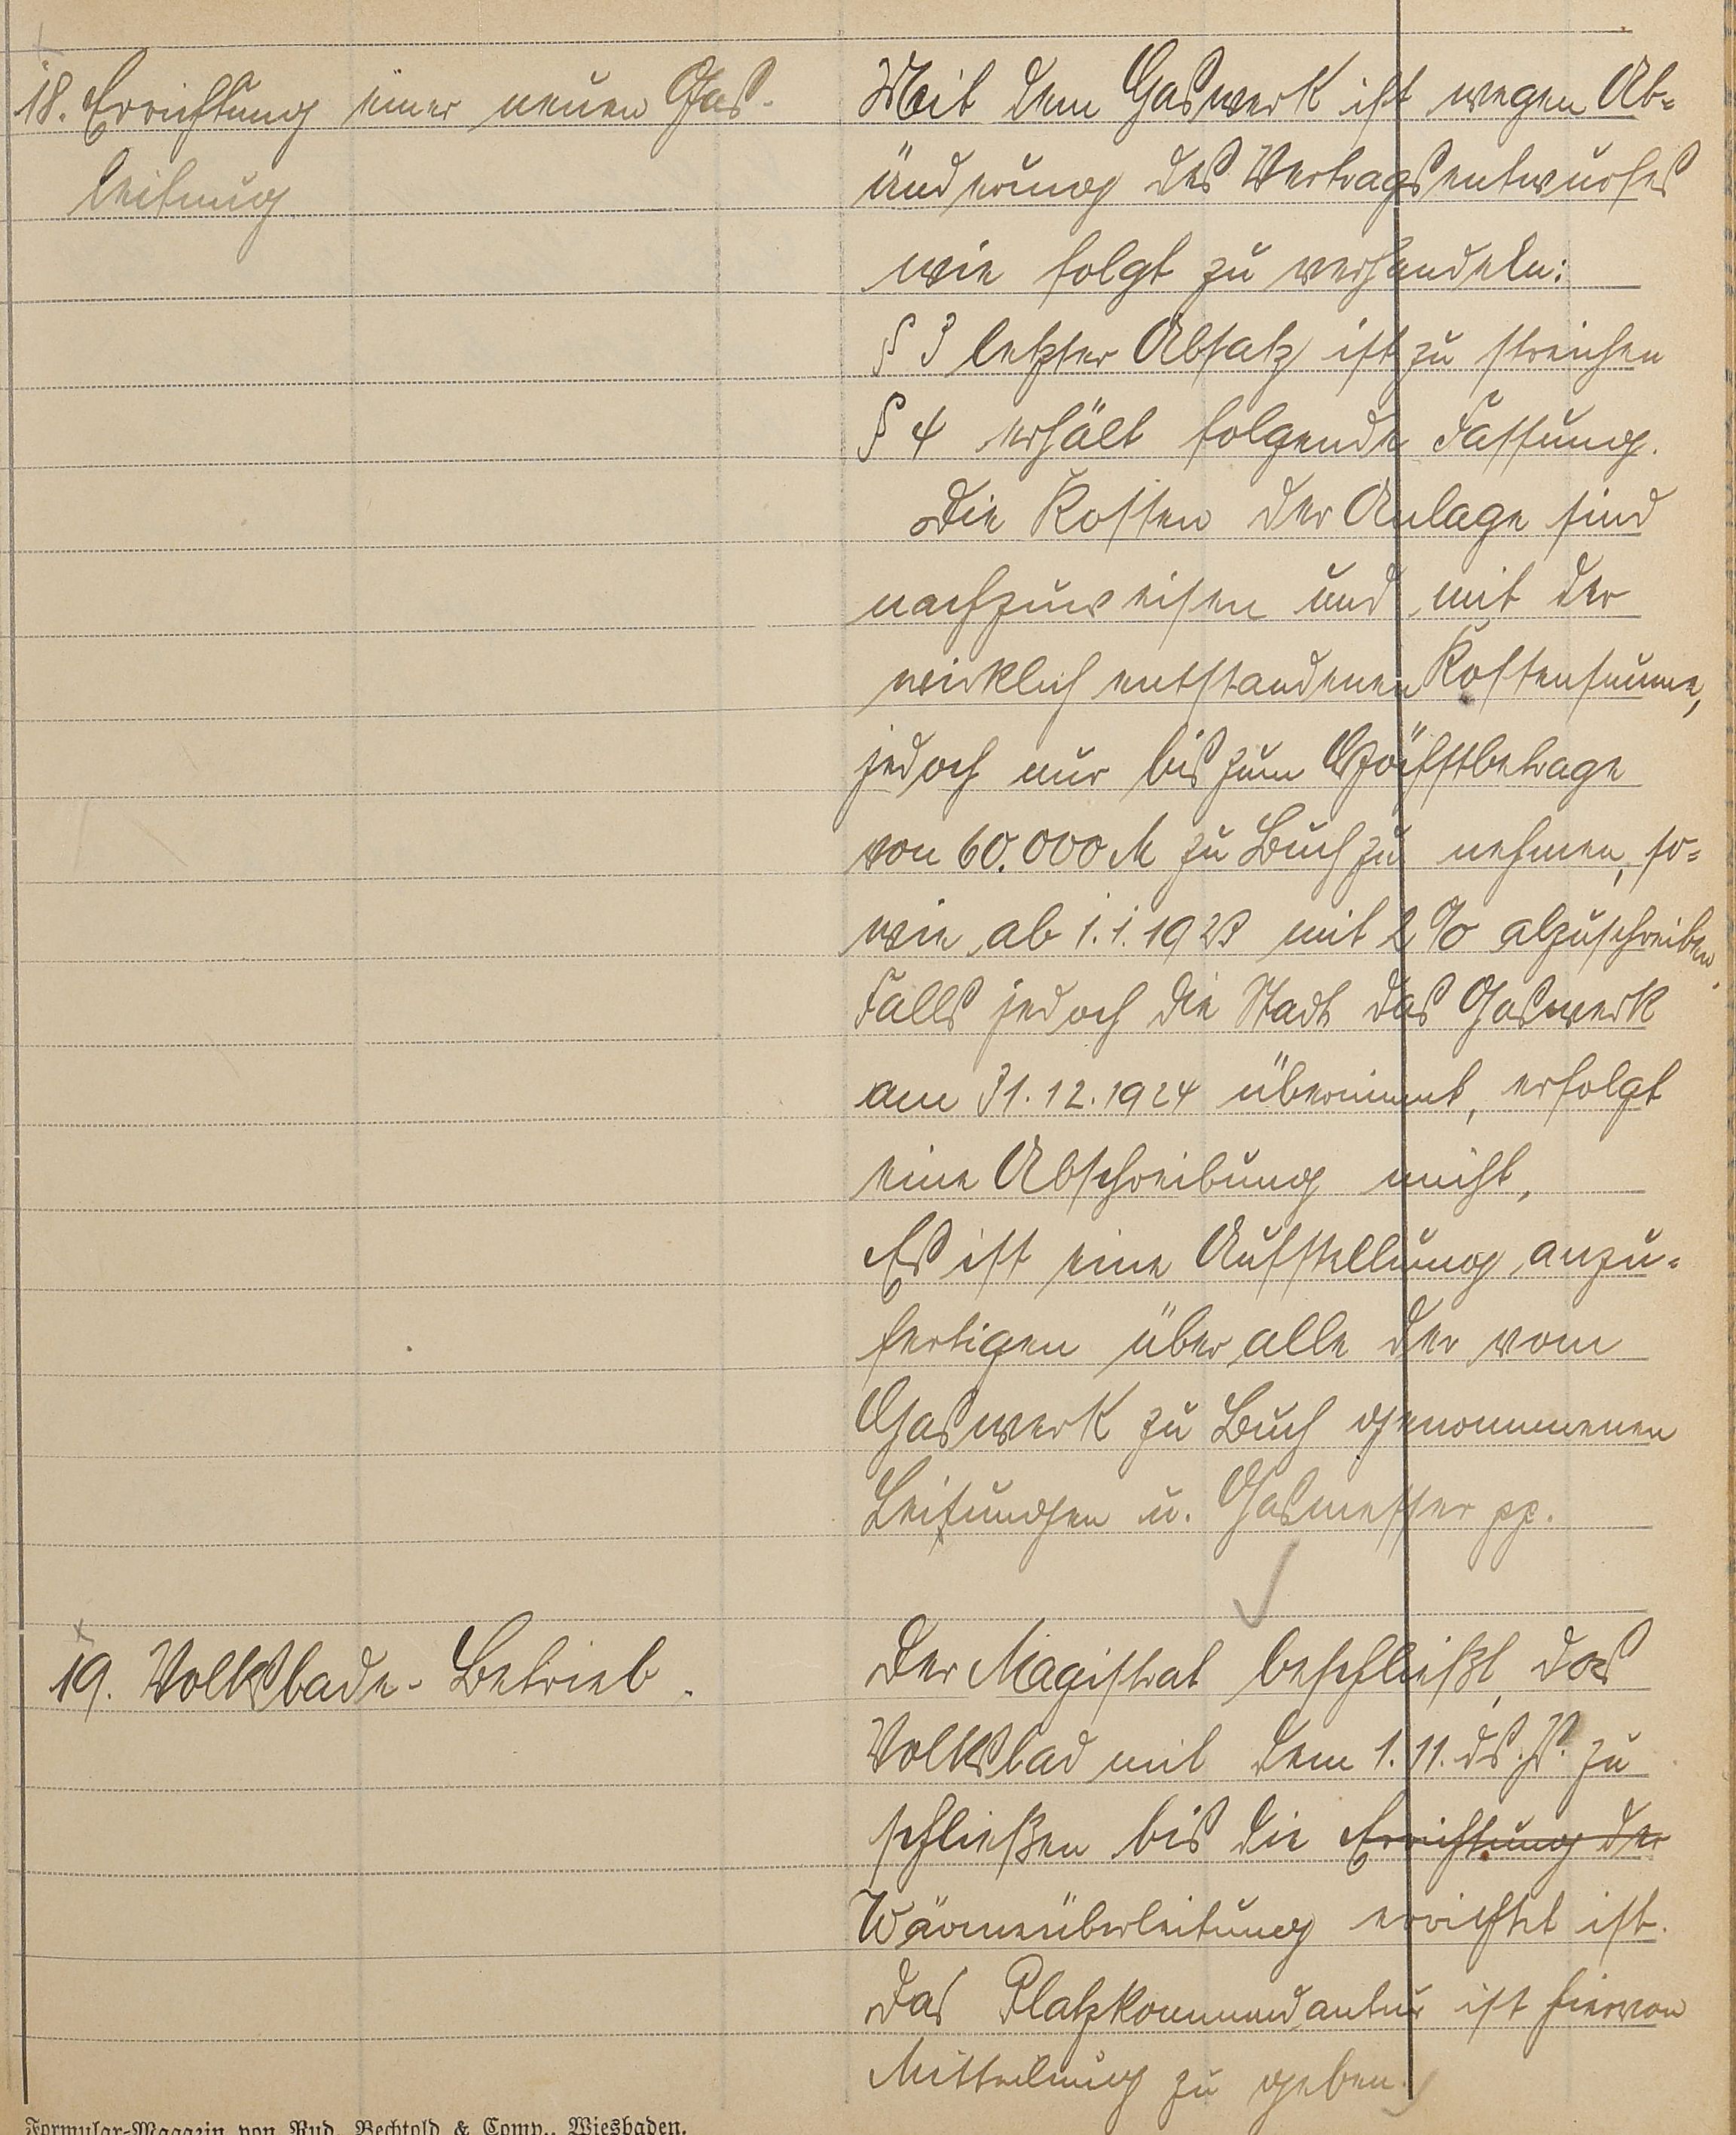 18. Errichtung einer neuen Gas-
leitung
Mit dem Gaswerk ist wegen Ab-
änderung des Vertragsentwurfes
wie folgt zu verhandeln:
§ 3 letzter Absatz ist zu streichen
§ 4 erhält folgende Fassung.
Die Kosten der Anlage sind
nachzuweisen und mit der
wirklich entstandenen Kostensumme,
jedoch nur bis zum Höchstbetrage
von 60.000 M zu Buch zu nehmen, so-
wie ab 1.1.1923 mit 2% abzuschreiben.
Falls jedoch die Stadt das Gaswerk
am 31.12.1924 übernimmt, erfolgt
eine Abschreibung nicht.
Es ist eine Aufstellung anzu-
fertigen über alle der vom
Gaswerk zu Buch genommenen
Leitungen u. Gasmesser pp.
19. Volksbade-Betrieb.
Der Magistrat beschließt, das
Volksbad mit dem 1.11. ds. Js. zu
schließen bis die Errichtung der
Wärmeüberleitung errichtet ist.
Das Platzkommandantur ist hiervon
Mitteilung zu geben.
Formular-Magazin von Rud. Bechtold & Comp., Wiesbaden.